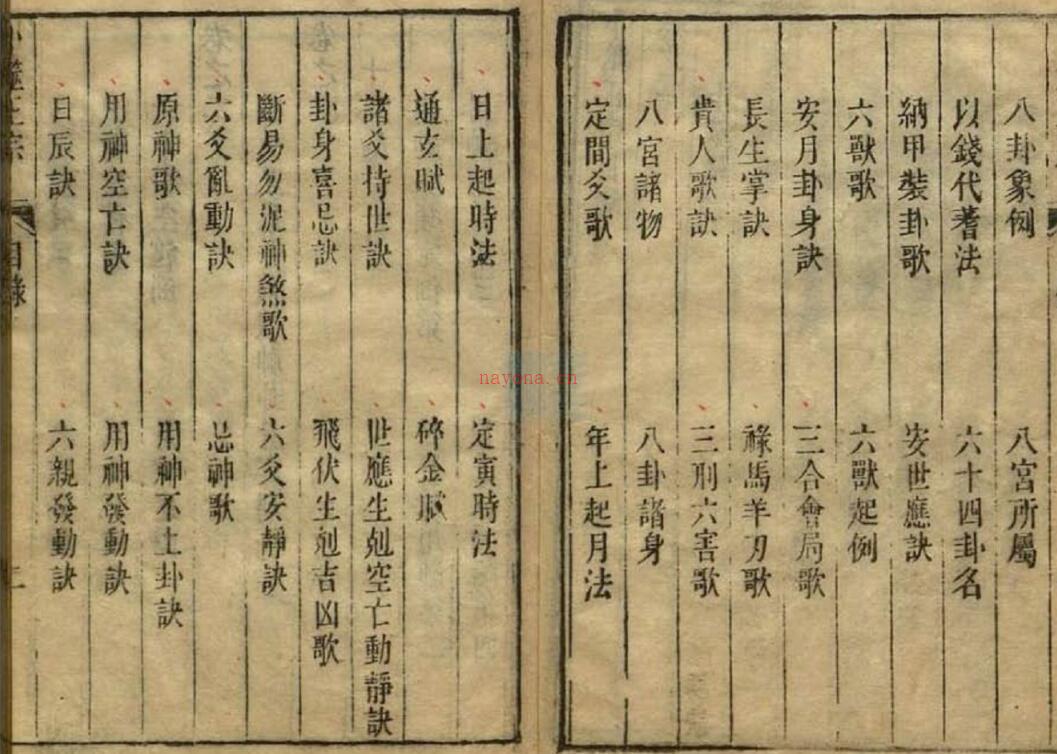 八卦象例 八宮所屬
以錢代蓍法 六十四卦名
納甲裝卦歌 安世應訣
六獸歌 六獸起例
安月卦身訣 三合會局歌
長生掌訣 祿馬羊刃歌
貴人歌訣 三刑六害歌
八宮諸物 八卦諸身
定間爻歌 年上起月法
日上起時法 定寅時法
通玄賦 碎金賦
諸爻持世訣 世應生剋空亡動靜訣
卦身喜忌訣 飛伏生剋吉凶歌
斷易勿泥神煞歌 六爻安靜訣
六爻亂動訣 忌神歌
原神歌 用神不上卦訣
用神空亡訣 用神發動訣
日辰訣 六親發動訣
筮正宗 目錄
nayona.cn